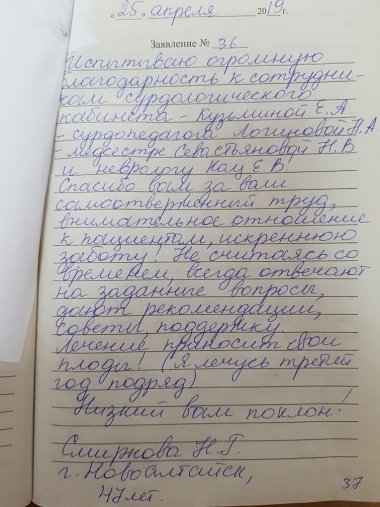 „25„ апреля 2019г.
Заявление № 36
Испытываю огромную
благодарность к сотрудни-
кам сурдологического
кабинета - Кузьминой Е.А
- сурдопедагога Логиновой Н.А
- медсестре Севастьяновой Н.В
и неврологу Кац Е.В
Спасибо вам за ваш
самоотверженный труд,
внимательное отношение
к пациентам, искреннюю
заботу! Не считаясь со
временем, всегда отвечают
на заданные вопросы,
дают рекомендации,
советы, поддержку.
Лечение приносит свои
плоды! (Я лечусь третий
год подряд)
Низкий вам поклон!
Смирнова Н.Г.
г. Новоалтайск,
47 лет.
37